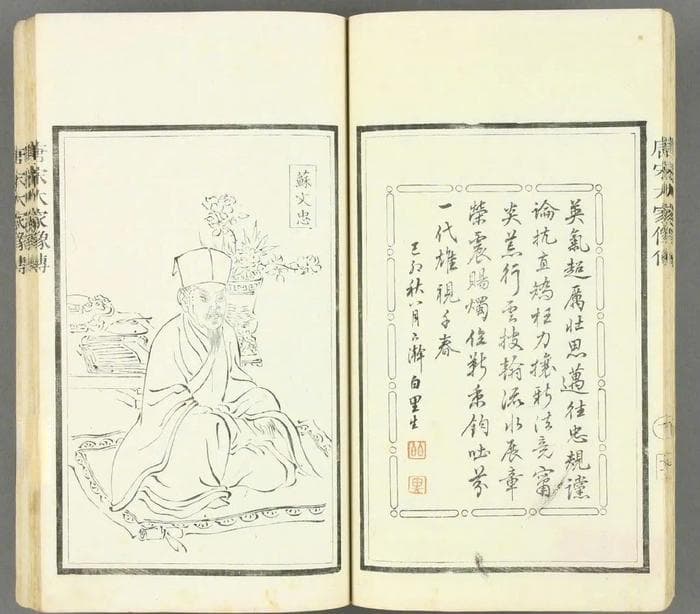 唐宋大家像傳
英氣超厲壯思邁往忠規讜
論抗直矯枉力攘新法竟竄
炎荒行雲披翰流水展章
榮震賜燭位靳秉鈞吐芬
一代雄視千春
己卯秋八月下澣 白里生
蘇文忠
唐宋大家像傳